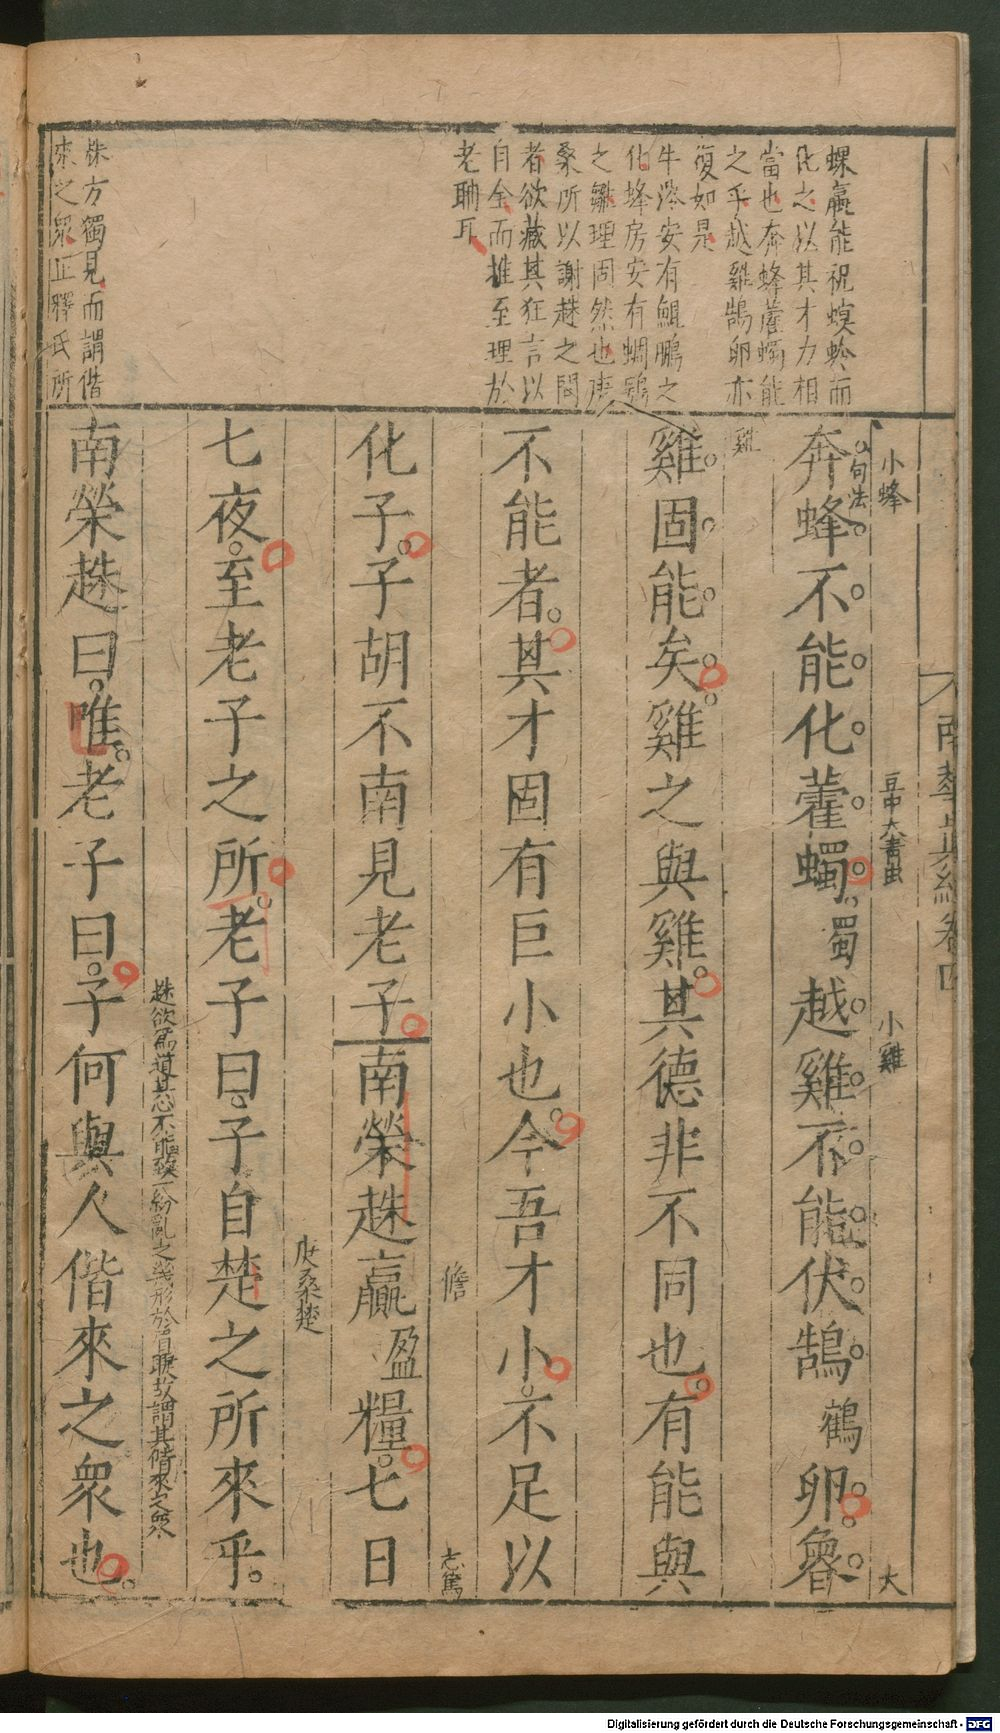 蜾蠃能祝螟蛉而
化之以其才力相
當也奔蜂藿蠋能
之乎越雞鵠卵亦
復如是
牛涔安有鯤鵬之
化蜂房安有蜩鴳
之雛理固然也庚
桑所以謝趎之問
者欲藏其狂言以
自全而推至理於
老聃耳
趎方獨見而謂偕
來之衆正釋氏所
南華真經卷四
小蜂
豆中大青虫
小雞
大
句法
奔蜂不能化藿蠋蜀越雞不能伏鵠鶴卵魯
雞
雞固能矣雞之與雞其德非不同也有能與
不能者其才固有巨小也今吾才小不足以
擔
志篤
化子子胡不南見老子南榮趎贏盈糧七日
庚桑楚
七夜至老子之所老子曰子自楚之所來乎
趎欲為道其心不能致一紛亂之幾形於眉睫故謂其偕來之衆
南榮趎曰唯老子曰子何與人偕來之衆也
Digitalisierung gefördert durch die Deutsche Forschungsgemeinschaft - DFG